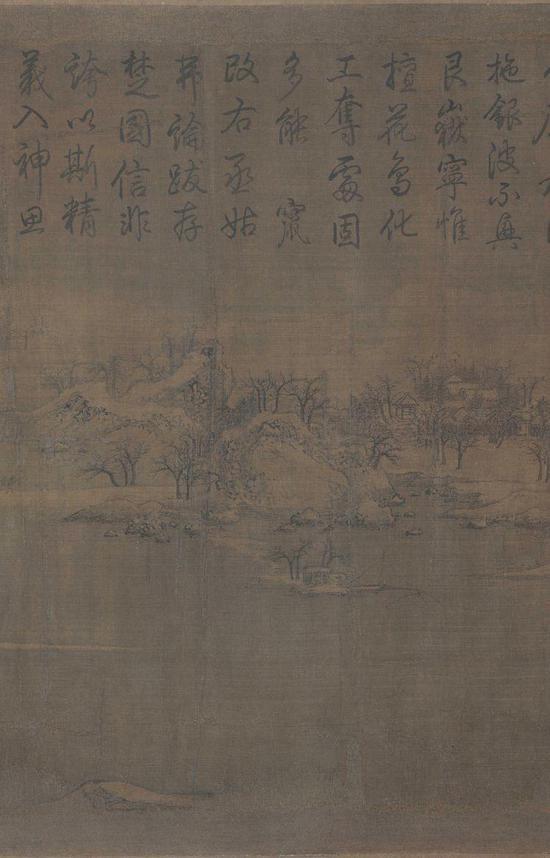 拖銀波不興
艮嶽寧惟
擅花鳥化
工奪處固
多能竄
改右丞姑
弗論跋存
楚國信非
誇以斯精
義入神思